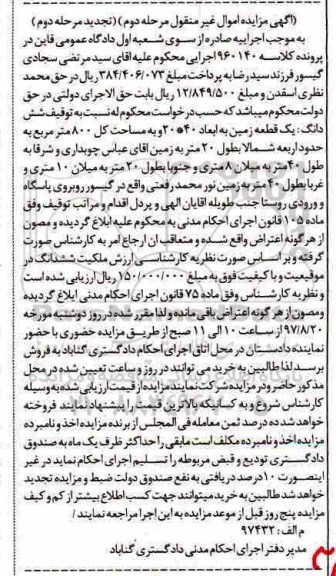 (آگهی مزایده اموال غیر منقول مرحله دوم) (تجدید مرحله دوم)
به موجب اجراییه صادره از سوی شعبه اول دادگاه عمومی قاین در
پرونده کلاسه ۹۶۰۱۴۰ اجرایی محکوم علیه آقای سید مرتضی سجادی
گیسور فرزند سید رضا به پرداخت مبلغ ۳۸۴/۴۰۶/۰۷۳ ریال در حق محمد
نظری اسفدن و مبلغ ۱۲/۸۴۹/۵۰۰ ریال بابت حق الاجرای دولتی در حق
دولت محکوم میباشد که حسب درخواست محکوم له نسبت به توقیف شش
دانگ : یک قطعه زمین به ابعاد ۴۰*۲۰ و به مساحت کل ۸۰۰ متر مربع به
حدود اربعه شمالا بطول ۲۰ متر به زمین آقای عباس چوبداری و شرقا به
طول ۴۰ متر به میلان ۸ متری و جنوبا بطول ۲۰ متر به میلان ۱۰ متری و
غربا بطول ۴۰ متر به زمین نور محمد رفعتی واقع در گیسور روبروی پاسگاه
و ورودی روستا جنب طویله آقایان الهی و پردل اقدام و مراتب توقیف وفق
ماده ۱۰۵ قانون اجرای احکام مدنی به محکوم علیه ابلاغ گردیده و مصون
از هر گونه اعتراض واقع شده و متعاقب آن ارجاع امر به کارشناس صورت
گرفته و بر اساس صورت نظریه کارشناسی ارزش ملکیت ششدانگ در
موقعیت و با کیفیت فوق به مبلغ ۱۵۰/۰۰۰/۰۰۰ ریال ارزیابی شده است
و نظریه کارشناس وفق ماده ۷۵ قانون اجرای احکام مدنی ابلاغ گردیده
و مصون از هر گونه اعتراض باقی مانده و لذا مقرر شده در روز دوشنبه مورخه
۹۷/۸/۲۰ از ساعت ۱۰ الی ۱۱ صبح از طریق مزایده حضوری با حضور
نماینده دادستان در محل اتاق اجرای احکام دادگستری گناباد به فروش
برسد لذا طالبین به خرید می توانند در روز و ساعت تعیین شده در محل
مذکور حاضر و در مزایده شرکت نمایند مزایده از قیمت ارزیابی شده به وسیله
کارشناس شروع و به کسانیکه بالاترین قیمت را پیشنهاد نمایند فروخته
خواهد شد ده درصد ثمن معامله فی المجلس از برنده مزایده اخذ و نامبرده
مزایده اخذ و نامبرده مکلف است مابقی را حداکثر ظرف یک ماه به صندوق
دادگستری تودیع و قبض مربوطه را تسلیم اجرای احکام نماید در غیر
اینصورت ۱۰ درصد دریافتی به نفع صندوق دولت ضبط و مزایده تجدید
خواهد شد طالبین به خرید میتوانند جهت کسب اطلاع بیشتر از کم و کیف
مزایده پنج روز قبل از موعد مزایده به این اجرا مراجعه نمایند /
م الف : ۹۷۴۳۲
مدیر دفتر اجرای احکام مدنی دادگستری گناباد